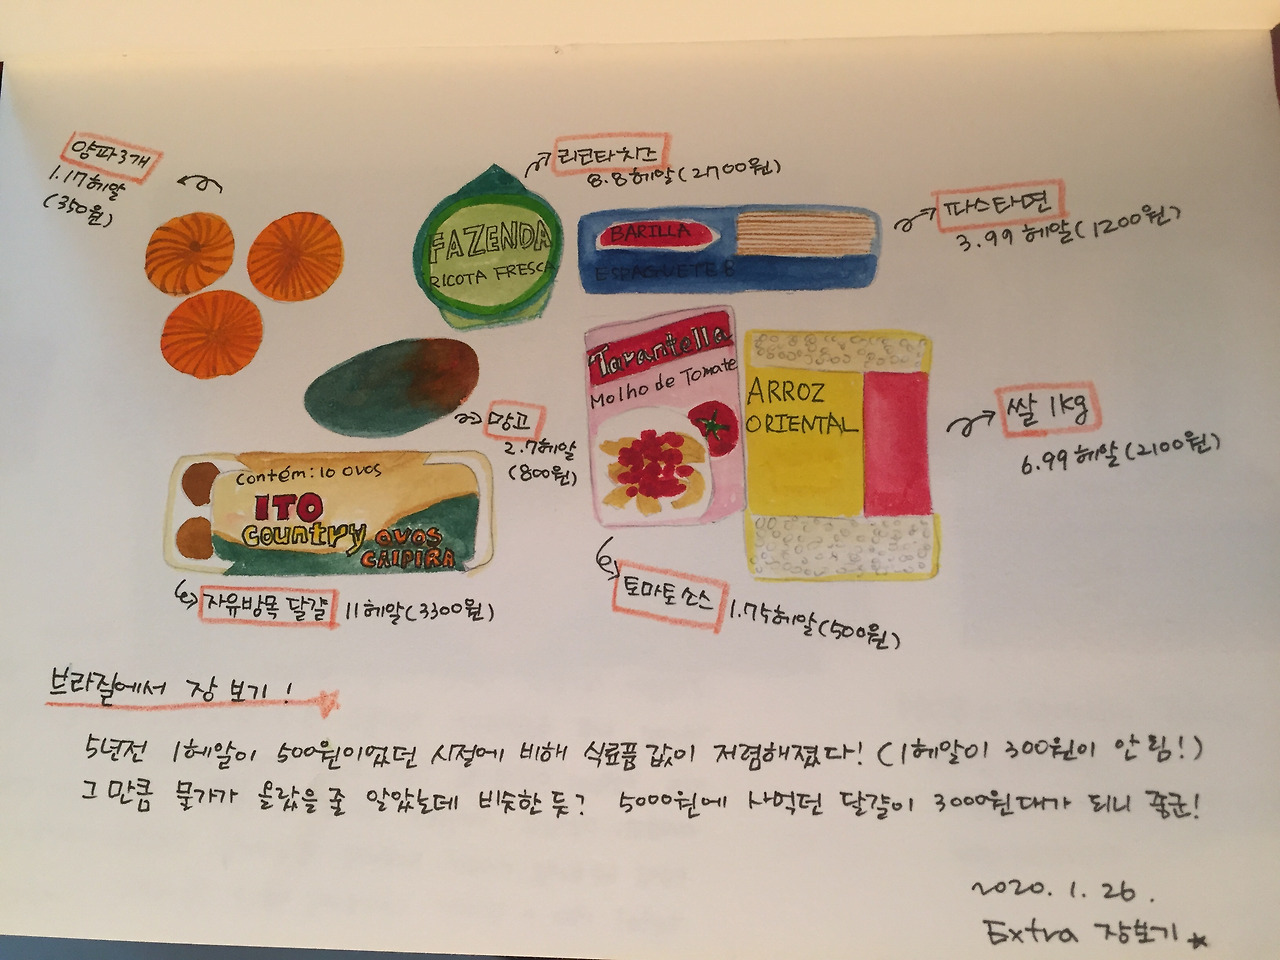 양파3개
1.17헤알
(350원)
리코타치즈
8.8헤알(2700원)
FAZENDA
RICOTA FRESCA
BARILLA
ESPAGUETE 8
파스타면
3.99 헤알(1200원)
망고
2.7헤알
(800원)
Tarantella
Molho de Tomate
ARROZ
ORIENTAL
쌀 1kg
6.99 헤알(2100원)
contém: 10 ovos
ITO
country
OVOS
CAIPIRA
자유방목 달걀 11헤알(3300원)
토마토소스 1.75헤알(500원)
브라질에서 장 보기!
5년전 1헤알이 500원이었던 시절에 비해 식료품 값이 저렴해졌다! (1헤알이 300원이 안 됨!)
그 만큼 물가가 올랐을 줄 알았는데 비슷한 듯? 5000원에 사먹던 달걀이 3000원대가 되니 좋군!
2020. 1. 26.
Extra 장보기